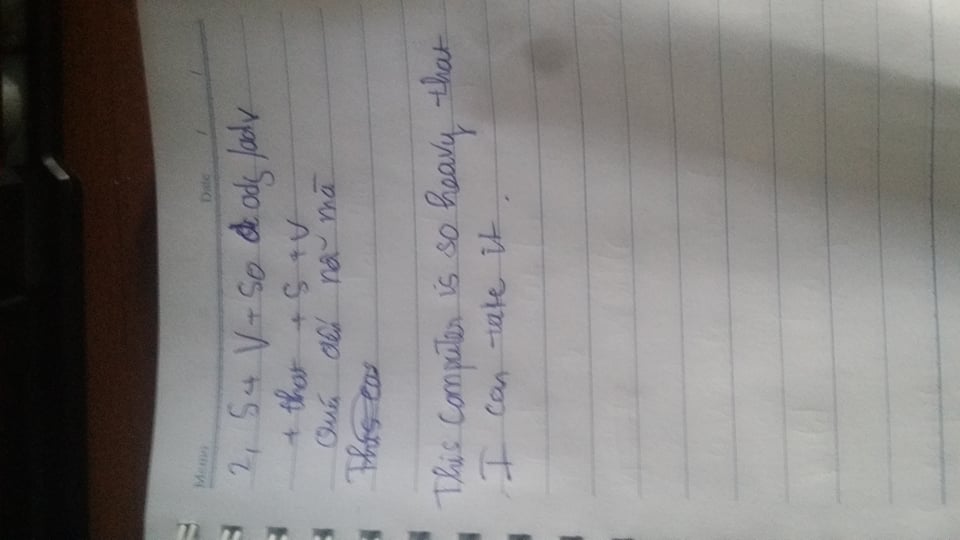 Memo Date / /
2, S + V + so adj/adv
+ that + S + V
Quá đến nỗi mà
This com
This computer is so heavy that
I can take it.